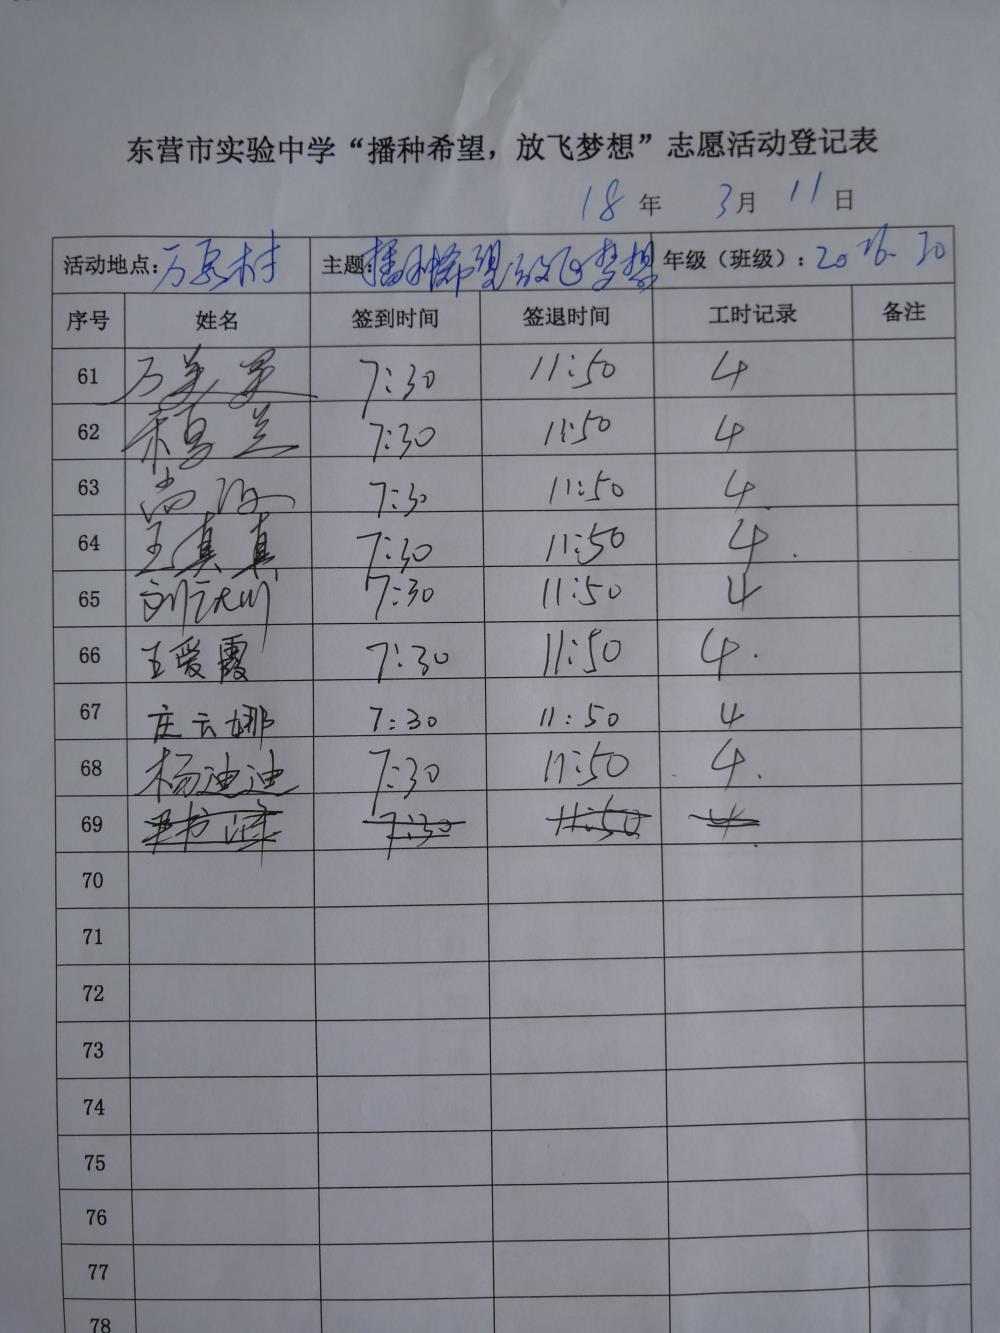 东营市实验中学“播种希望，放飞梦想”志愿活动登记表
18年 3月 11日
活动地点：万泉村 主题：播种希望,放飞梦想 年级（班级）：2016.30
序号 姓名 签到时间 签退时间 工时记录 备注
61 万美 7:30 11:50 4
62 兰 7:30 11:50 4
63 7:30 11:50 4
64 王真真 7:30 11:50 4
65 刘 7:30 11:50 4
66 王爱霞 7:30 11:50 4
67 庄云娜 7:30 11:50 4
68 杨迪迪 7:30 11:50 4
69 7:30 11:50 4
70
71
72
73
74
75
76
77
78